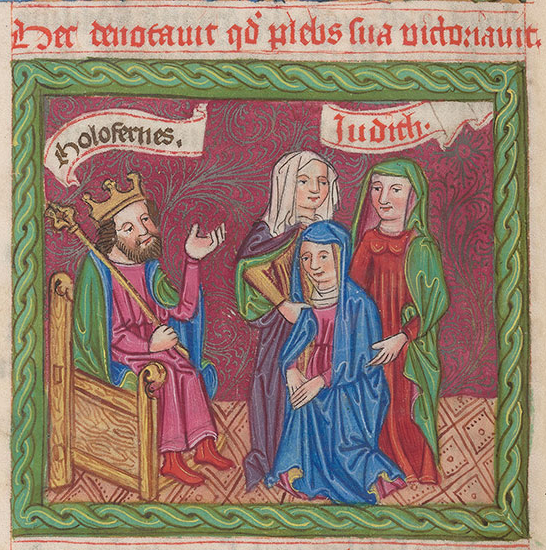 Hec denotauit qd plebs sua uictoriauit.
Holofernes.
Iudith.